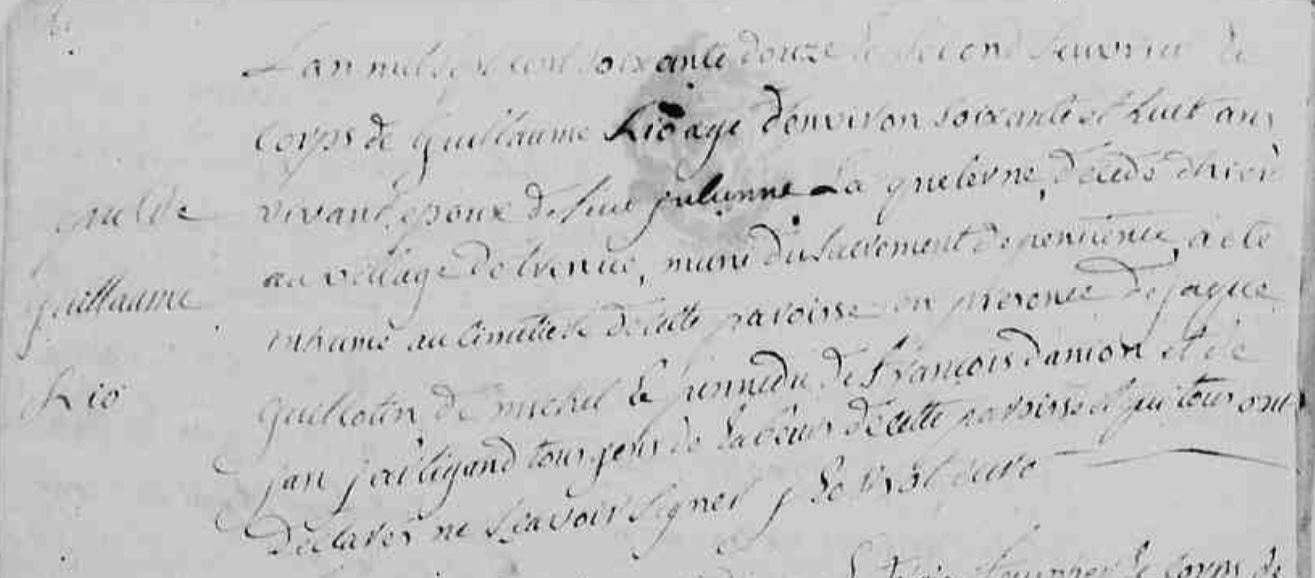 L'an mil sept cent soixante douze le second fevrier le
corps de Guillaume Rio agé d'environ soixante et huit ans
vivant epoux de feue julienne La quelenne, decedé d'hier
au village de, muni du sacrement de penitence, a ete
inhumé au cimetiere de cette paroisse en presence de jaque
Guillaume
Guillotin de michel le jennedu de François danion et de
Rio
jan tous gens de labeur de cette paroisse et qui tous ont
declaré ne scavoir signer
le corps de